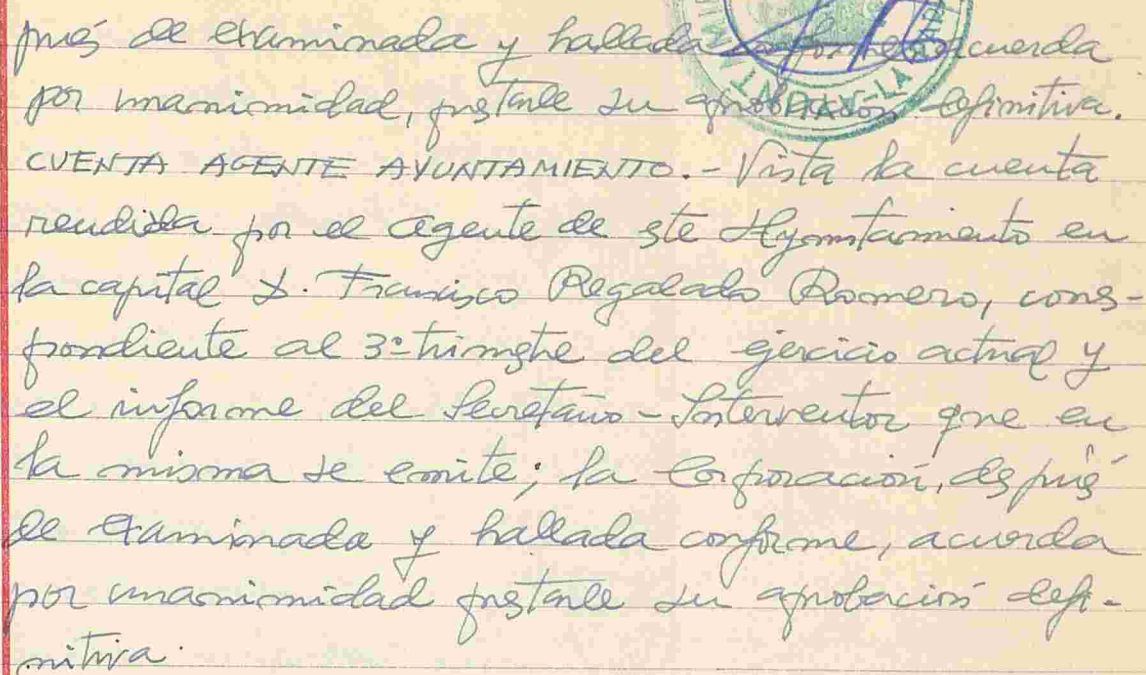 pués de examinada y hallada conforme, acuerda
por unanimidad, prestarle su aprobación definitiva.
CUENTA AGENTE AYUNTAMIENTO.- Vista la cuenta
rendida por el agente de este Ayuntamiento en
la capital D. Francisco Regalado Romero, corres-
pondiente al 3º trimestre del ejercicio actual y
el informe del Secretario-Interventor que en
la misma se emite; la Corporación, después
de examinada y hallada conforme, acuerda
por unanimidad prestarle su aprobación defi-
nitiva.